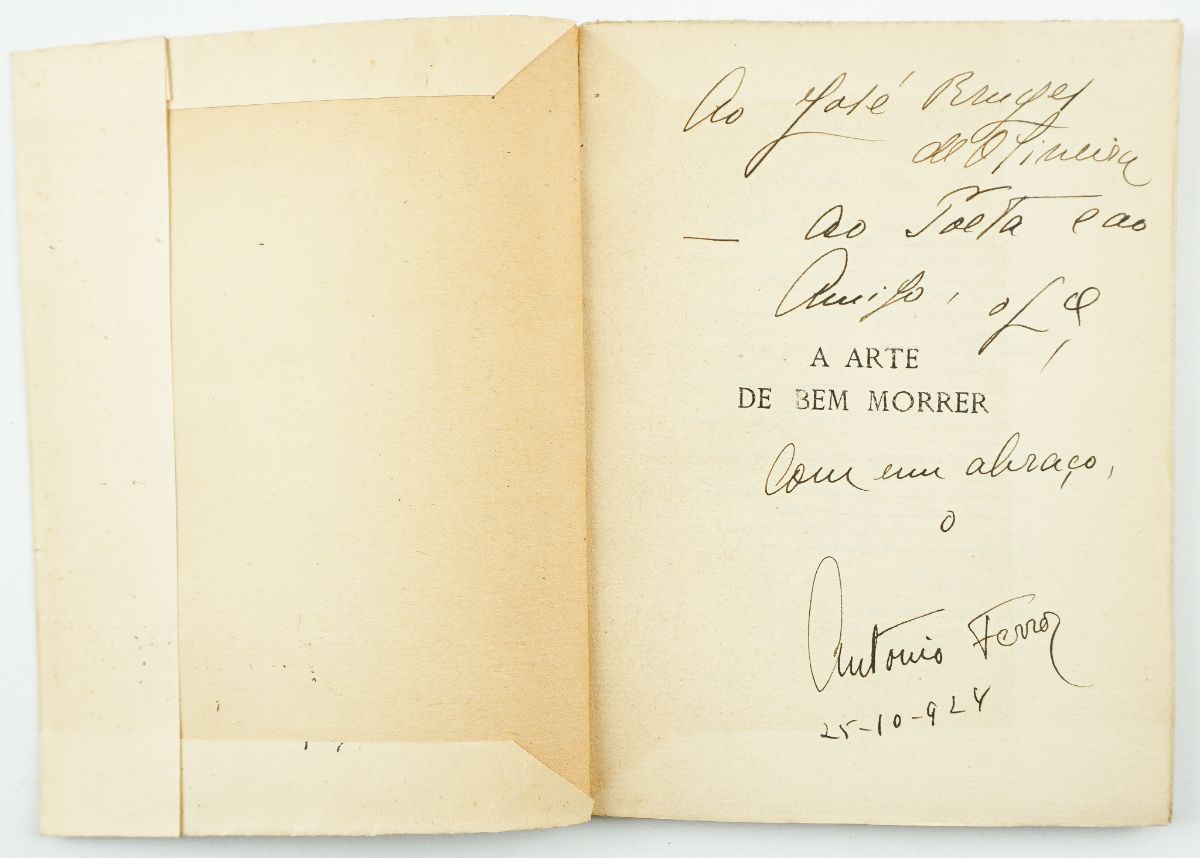 Ao José Bruges
de Oliveira
— Ao Poeta e ao
Amigo,
A ARTE
DE BEM MORRER
Com um abraço,
o
Antonio Ferro
25-10-924